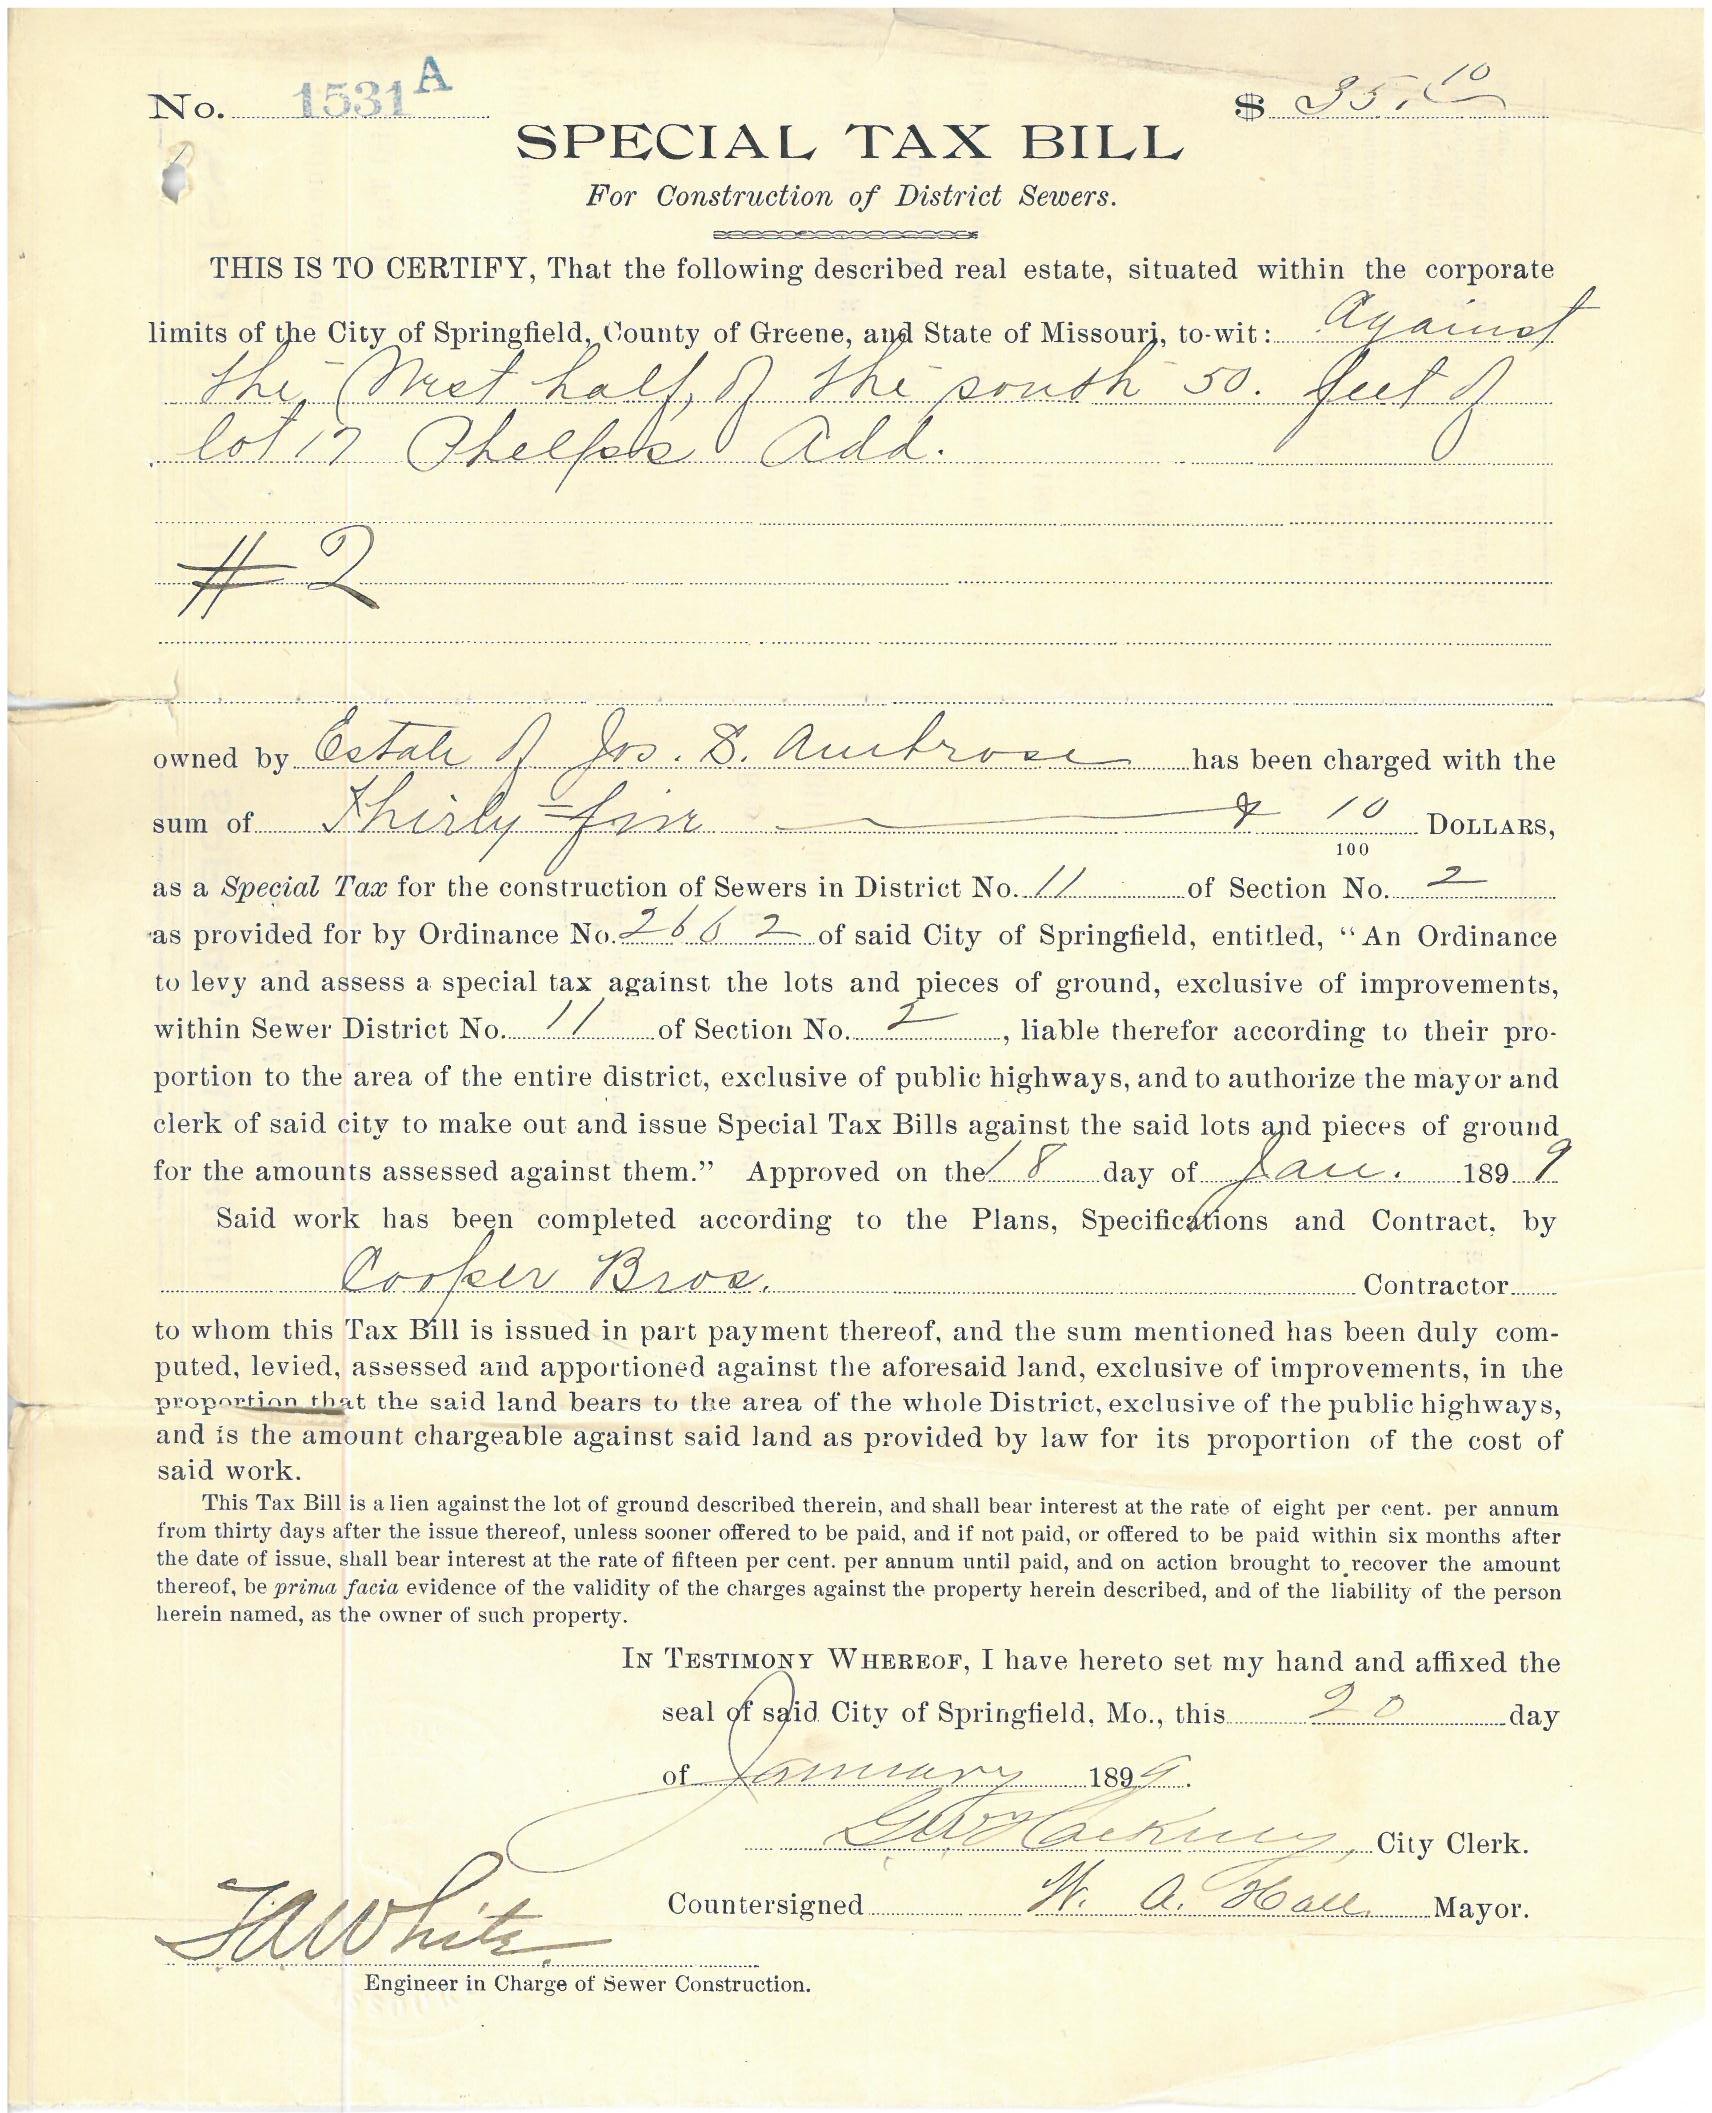 No. 1531 A
$ 35.10
SPECIAL TAX BILL
For Construction of District Sewers.
THIS IS TO CERTIFY, That the following described real estate, situated within the corporate
limits of the City of Springfield, County of Greene, and State of Missouri, to-wit: Against
the West half of the south 50. feet of
lot 17 Phelps Add.
# 2
owned by Estate of Jos. S. Ambrose has been charged with the
sum of Thirty=five & 10/100 DOLLARS,
as a Special Tax for the construction of Sewers in District No. 11 of Section No. 2
as provided for by Ordinance No. 2662 of said City of Springfield, entitled, "An Ordinance
to levy and assess a special tax against the lots and pieces of ground, exclusive of improvements,
within Sewer District No. 11 of Section No. 2, liable therefor according to their pro-
portion to the area of the entire district, exclusive of public highways, and to authorize the mayor and
clerk of said city to make out and issue Special Tax Bills against the said lots and pieces of ground
for the amounts assessed against them." Approved on the 18 day of Jan. 1899
Said work has been completed according to the Plans, Specifications and Contract, by
Cooper Bros. Contractor
to whom this Tax Bill is issued in part payment thereof, and the sum mentioned has been duly com-
puted, levied, assessed and apportioned against the aforesaid land, exclusive of improvements, in the
proportion that the said land bears to the area of the whole District, exclusive of the public highways,
and is the amount chargeable against said land as provided by law for its proportion of the cost of
said work.
This Tax Bill is a lien against the lot of ground described therein, and shall bear interest at the rate of eight per cent. per annum
from thirty days after the issue thereof, unless sooner offered to be paid, and if not paid, or offered to be paid within six months after
the date of issue, shall bear interest at the rate of fifteen per cent. per annum until paid, and on action brought to recover the amount
thereof, be prima facia evidence of the validity of the charges against the property herein described, and of the liability of the person
herein named, as the owner of such property.
IN TESTIMONY WHEREOF, I have hereto set my hand and affixed the
seal of said City of Springfield, Mo., this 20 day
of January 1899.
G W Hackney City Clerk.
Countersigned W. A. Hall Mayor.
F A White
Engineer in Charge of Sewer Construction.